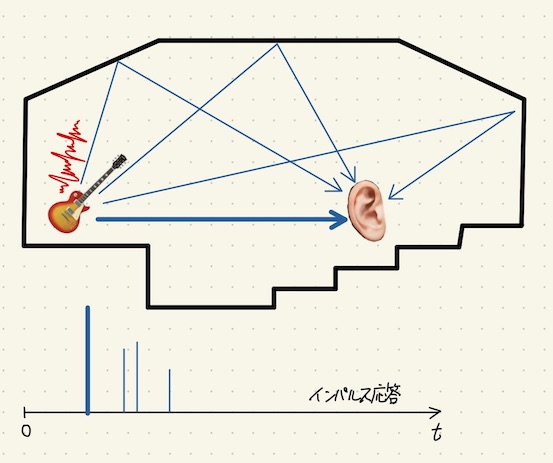 インパルス応答
0
t